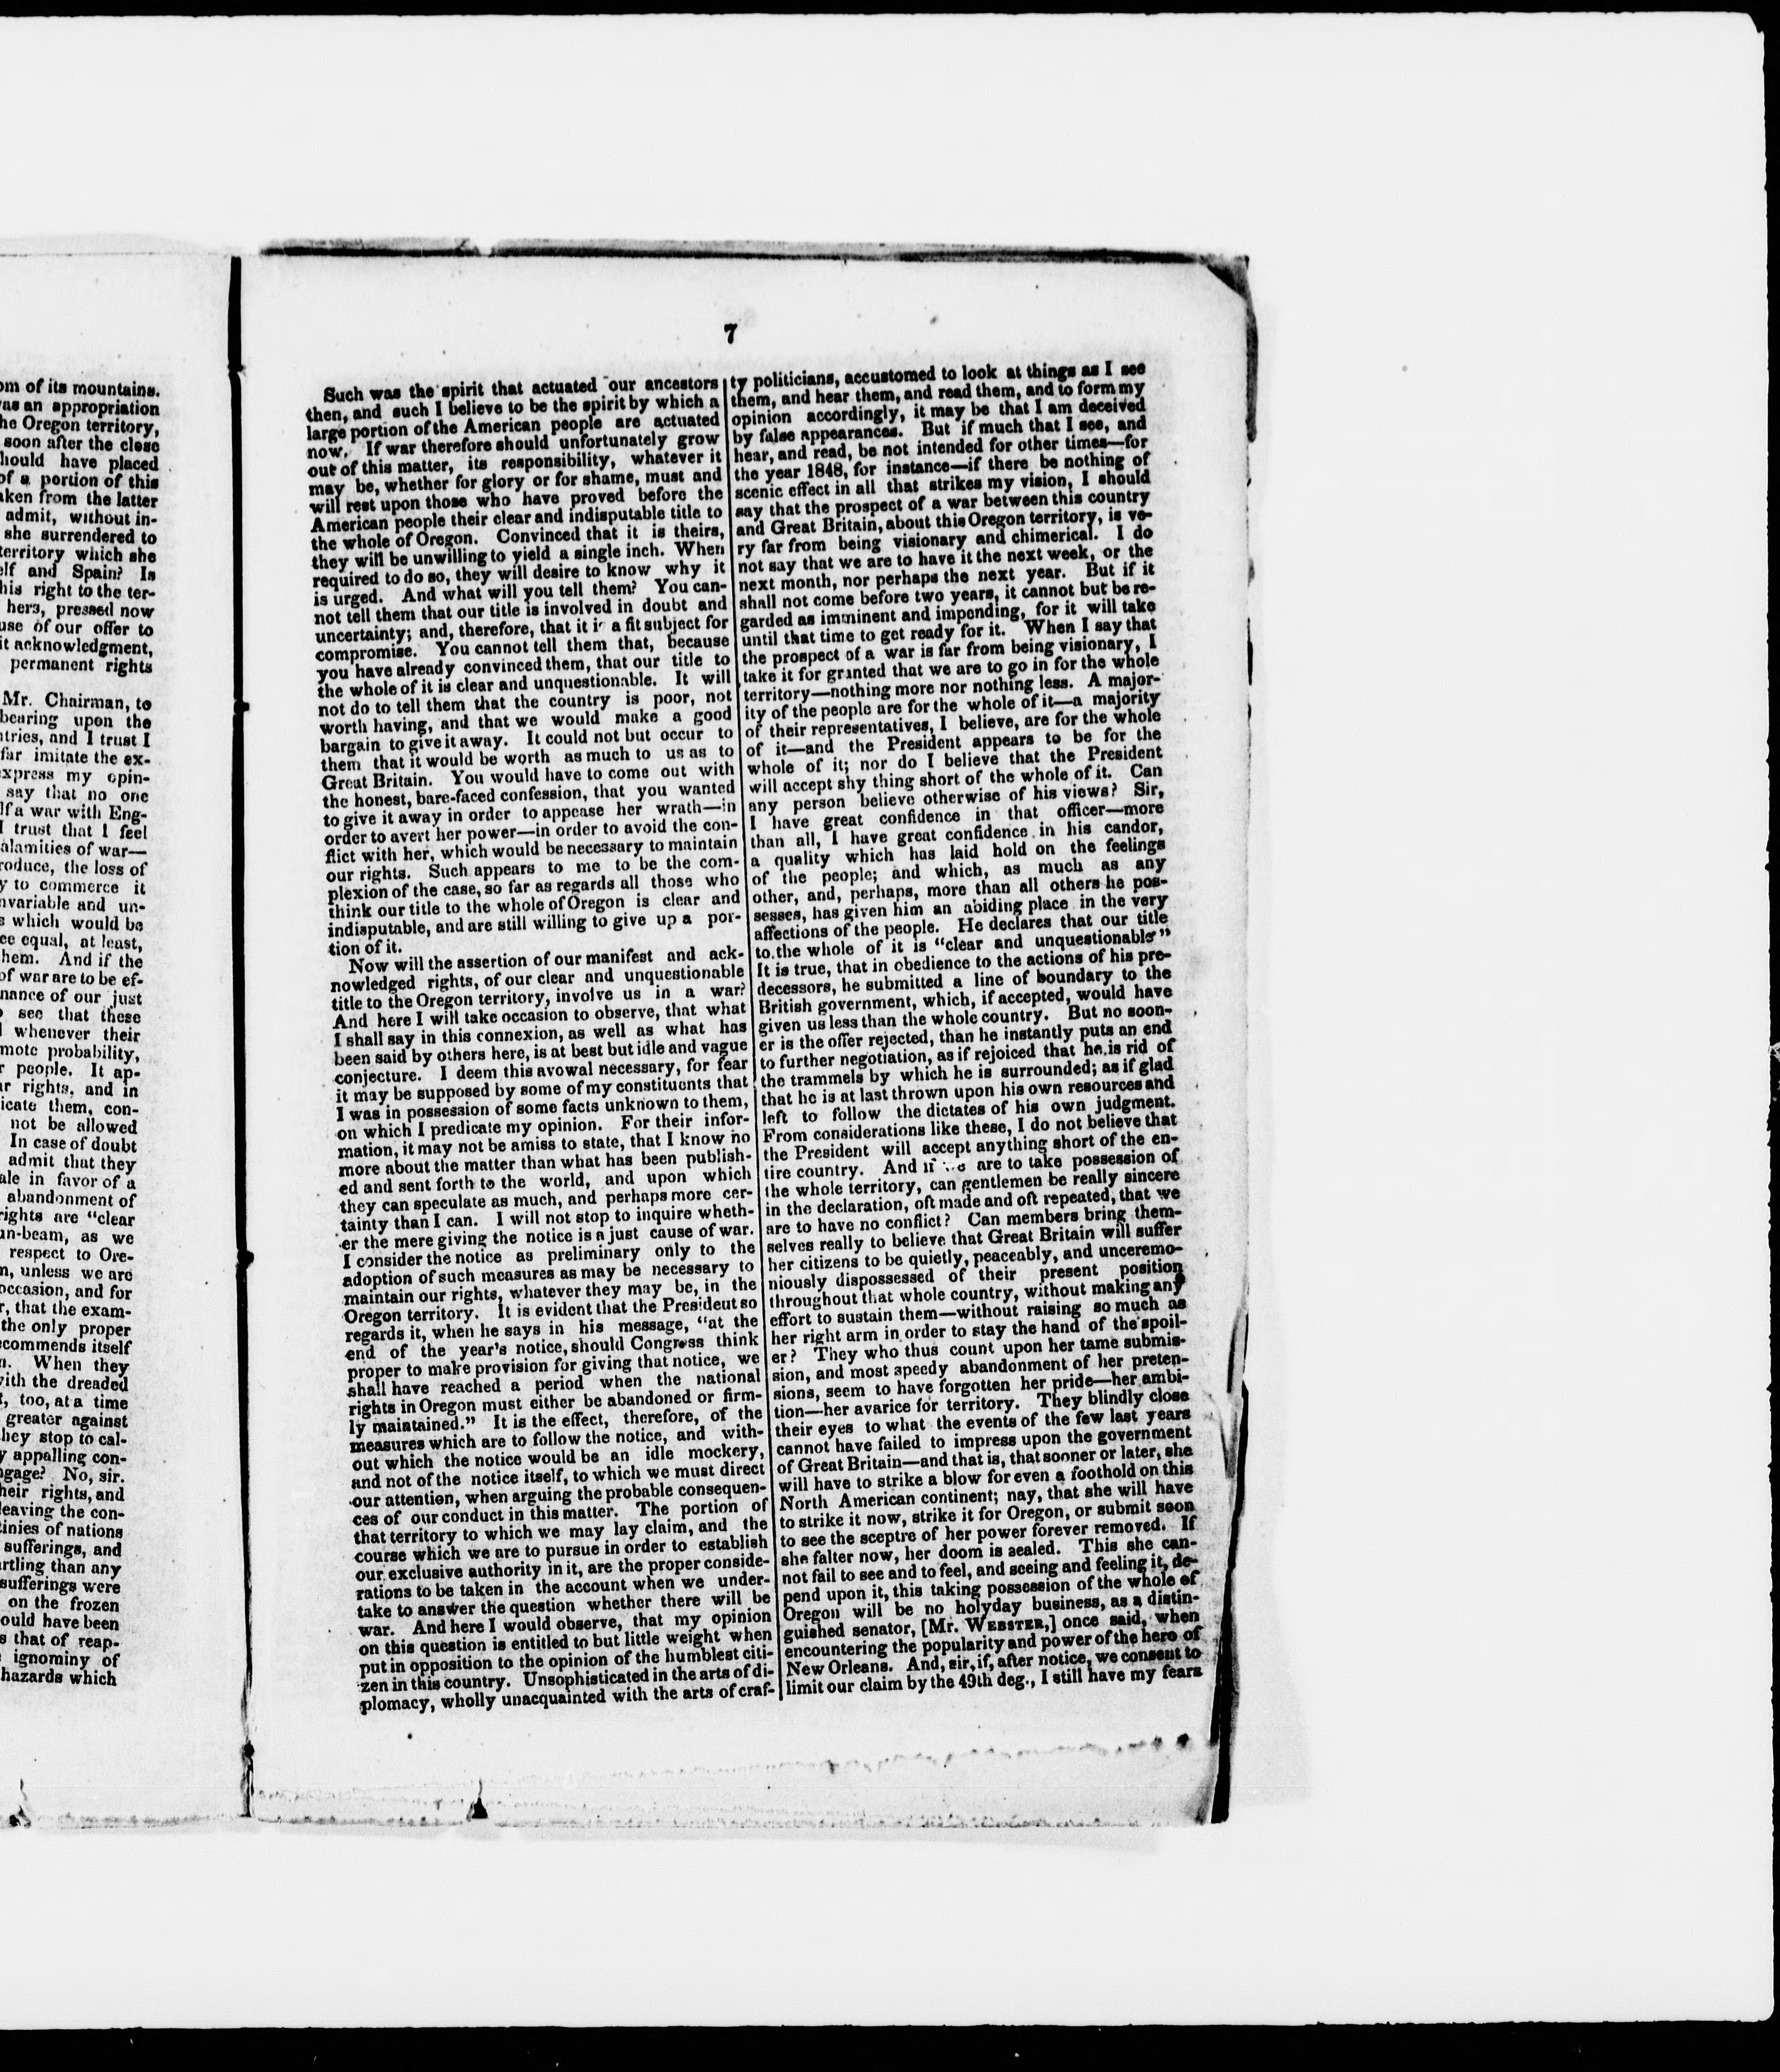 om of its mountains.
as an appropriation
he Oregon territory,
soon after the close
hould have placed
of a portion of this
aken from the latter
admit, without in-
she surrendered to
territory which she
elf and Spain? Is
his right to the ter-
hers, pressed now
use of our offer to
it acknowledgment,
permanent rights
Mr. Chairman, to
bearing upon the
ntries, and I trust I
far imitate the ex-
xpress my opin-
say that no one
lf a war with Eng-
I trust that I feel
alamities of war—
roduce, the loss of
y to commerce it
nvariable and un-
s which would be
ce equal, at least,
hem. And if the
of war are to be ef-
nance of our just
see that these
whenever their
mote probability,
r people. It ap-
ur rights, and in
icate them, con-
not be allowed
In case of doubt
admit that they
ale in favor of a
abandonment of
rights are "clear
un-beam, as we
respect to Ore-
n, unless we are
occasion, and for
r, that the exam-
the only proper
commends itself
n. When they
with the dreaded
t, too, at a time
greater against
hey stop to cal-
y appalling con-
ngage? No, sir.
heir rights, and
leaving the con-
tinies of nations
sufferings, and
rtling than any
sufferings were
on the frozen
ould have been
s that of reap-
ignominy of
hazards which
7
Such was the spirit that actuated our ancestors
then, and such I believe to be the spirit by which a
large portion of the American people are actuated
now. If war therefore should unfortunately grow
out of this matter, its responsibility, whatever it
may be, whether for glory or for shame, must and
will rest upon those who have proved before the
American people their clear and indisputable title to
the whole of Oregon. Convinced that it is theirs,
they will be unwilling to yield a single inch. When
required to do so, they will desire to know why it
is urged. And what will you tell them? You can-
not tell them that our title is involved in doubt and
uncertainty; and, therefore, that it is a fit subject for
compromise. You cannot tell them that, because
you have already convinced them, that our title to
the whole of it is clear and unquestionable. It will
not do to tell them that the country is poor, not
worth having, and that we would make a good
bargain to give it away. It could not but occur to
them that it would be worth as much to us as to
Great Britain. You would have to come out with
the honest, bare-faced confession, that you wanted
to give it away in order to appease her wrath—in
order to avert her power—in order to avoid the con-
flict with her, which would be necessary to maintain
our rights. Such appears to me to be the com-
plexion of the case, so far as regards all those who
think our title to the whole of Oregon is clear and
indisputable, and are still willing to give up a por-
tion of it.
Now will the assertion of our manifest and ack-
nowledged rights, of our clear and unquestionable
title to the Oregon territory, involve us in a war?
And here I will take occasion to observe, that what
I shall say in this connexion, as well as what has
been said by others here, is at best but idle and vague
conjecture. I deem this avowal necessary, for fear
it may be supposed by some of my constituents that
I was in possession of some facts unknown to them,
on which I predicate my opinion. For their infor-
mation, it may not be amiss to state, that I know no
more about the matter than what has been publish-
ed and sent forth to the world, and upon which
they can speculate as much, and perhaps more cer-
tainty than I can. I will not stop to inquire wheth-
er the mere giving the notice is a just cause of war.
I consider the notice as preliminary only to the
adoption of such measures as may be necessary to
maintain our rights, whatever they may be, in the
Oregon territory. It is evident that the President so
regards it, when he says in his message, "at the
end of the year's notice, should Congress think
proper to make provision for giving that notice, we
shall have reached a period when the national
rights in Oregon must either be abandoned or firm-
ly maintained." It is the effect, therefore, of the
measures which are to follow the notice, and with-
out which the notice would be an idle mockery,
and not of the notice itself, to which we must direct
our attention, when arguing the probable consequen-
ces of our conduct in this matter. The portion of
that territory to which we may lay claim, and the
course which we are to pursue in order to establish
our exclusive authority in it, are the proper conside-
rations to be taken in the account when we under-
take to answer the question whether there will be
war. And here I would observe, that my opinion
on this question is entitled to but little weight when
put in opposition to the opinion of the humblest citi-
zen in this country. Unsophisticated in the arts of di-
plomacy, wholly unacquainted with the arts of craf-
ty politicians, accustomed to look at things as I see
them, and hear them, and read them, and to form my
opinion accordingly, it may be that I am deceived
by false appearances. But if much that I see, and
hear, and read, be not intended for other times—for
the year 1848, for instance—if there be nothing of
scenic effect in all that strikes my vision, I should
say that the prospect of a war between this country
and Great Britain, about this Oregon territory, is ve-
ry far from being visionary and chimerical. I do
not say that we are to have it the next week, or the
next month, nor perhaps the next year. But if it
shall not come before two years, it cannot but be re-
garded as imminent and impending, for it will take
until that time to get ready for it. When I say that
the prospect of a war is far from being visionary, I
take it for granted that we are to go in for the whole
territory—nothing more nor nothing less. A major-
ity of the people are for the whole of it—a majority
of their representatives, I believe, are for the whole
of it—and the President appears to be for the
whole of it; nor do I believe that the President
will accept shy thing short of the whole of it. Can
any person believe otherwise of his views? Sir,
I have great confidence in that officer—more
than all, I have great confidence in his candor,
a quality which has laid hold on the feelings
of the people; and which, as much as any
other, and, perhaps, more than all others he pos-
sesses, has given him an abiding place in the very
affections of the people. He declares that our title
to the whole of it is "clear and unquestionable"
It is true, that in obedience to the actions of his pre-
decessors, he submitted a line of boundary to the
British government, which, if accepted, would have
given us less than the whole country. But no soon-
er is the offer rejected, than he instantly puts an end
to further negotiation, as if rejoiced that he is rid of
the trammels by which he is surrounded; as if glad
that he is at last thrown upon his own resources and
left to follow the dictates of his own judgment.
From considerations like these, I do not believe that
the President will accept anything short of the en-
tire country. And if we are to take possession of
the whole territory, can gentlemen be really sincere
in the declaration, oft made and oft repeated, that we
are to have no conflict? Can members bring them-
selves really to believe that Great Britain will suffer
her citizens to be quietly, peaceably, and unceremo-
niously dispossessed of their present position
throughout that whole country, without making any
effort to sustain them—without raising so much as
her right arm in order to stay the hand of the spoil-
er? They who thus count upon her tame submis-
sion, and most speedy abandonment of her preten-
sions, seem to have forgotten her pride—her ambi-
tion—her avarice for territory. They blindly close
their eyes to what the events of the few last years
cannot have failed to impress upon the government
of Great Britain—and that is, that sooner or later, she
will have to strike a blow for even a foothold on this
North American continent; nay, that she will have
to strike it now, strike it for Oregon, or submit soon
to see the sceptre of her power forever removed. If
she falter now, her doom is sealed. This she can-
not fail to see and to feel, and seeing and feeling it, de-
pend upon it, this taking possession of the whole of
Oregon will be no holyday business, as a distin-
guished senator, [Mr. WEBSTER,] once said, when
encountering the popularity and power of the hero of
New Orleans. And, sir, if, after notice, we consent to
limit our claim by the 49th deg., I still have my fears